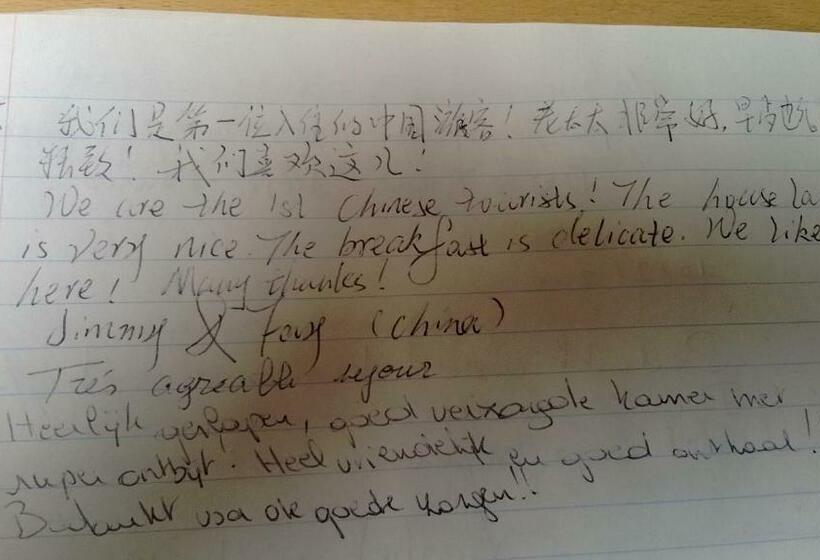 我们是第一位入住的中国游客！老太太非常好，早餐也
精致！我们喜欢这儿！
We are the 1st Chinese tourists! The house la
is very nice. The breakfast is delicate. We like
here! Many thanks!
Jimmy & Fay (China)
Très agreable sejour
Heerlijk geslapen, goed verzorgde kamer met
super ontbijt. Heel vriendelijk en goed onthaal!
Bedankt voor de goede zorgen!!